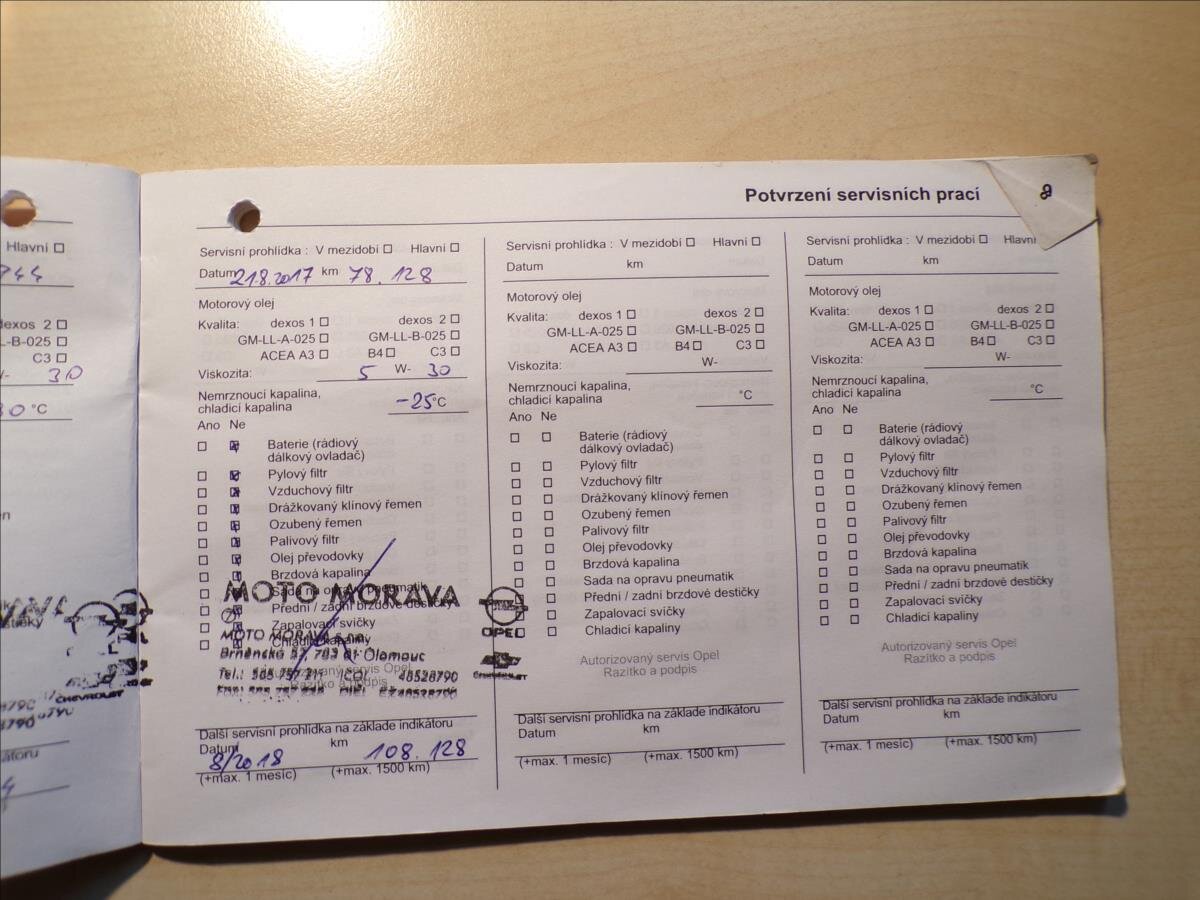 Potvrzení servisních prací
Hlavní
944
dexos 2
LL-B-025
C3
W- 30
°C
Servisní prohlídka : V mezidobí Hlavní
Datum 21.8.2017 km 78.128
Motorový olej
Kvalita: dexos 1 dexos 2
GM-LL-A-025 GM-LL-B-025
ACEA A3 B4 C3
Viskozita: 5 W- 30
Nemrznoucí kapalina,
chladicí kapalina -25°C
Ano Ne
Baterie (rádiový
dálkový ovladač)
Pylový filtr
Vzduchový filtr
Drážkovaný klínový řemen
Ozubený řemen
Palivový filtr
Olej převodovky
Brzdová kapalina
Sada na opravu pneumatik
MOTO MORAVA
Přední / zadní brzdové destičky
Zapalovací svíčky
Chladicí kapaliny
OPEL
CHEVROLET
Autorizovaný servis Opel
Razítko a podpis
Další servisní prohlídka na základe indikátoru
Datum km
8/2018 108.128
(+max. 1 mesíc) (+max. 1500 km)
Servisní prohlídka : V mezidobí Hlavní
Datum km
Motorový olej
Kvalita: dexos 1 dexos 2
GM-LL-A-025 GM-LL-B-025
ACEA A3 B4 C3
Viskozita: W-
Nemrznoucí kapalina,
chladicí kapalina °C
Ano Ne
Baterie (rádiový
dálkový ovladač)
Pylový filtr
Vzduchový filtr
Drážkovaný klínový řemen
Ozubený řemen
Palivový filtr
Olej převodovky
Brzdová kapalina
Sada na opravu pneumatik
Přední / zadní brzdové destičky
Zapalovací svíčky
Chladicí kapaliny
Autorizovaný servis Opel
Razítko a podpis
Další servisní prohlídka na základe indikátoru
Datum km
(+max. 1 mesíc) (+max. 1500 km)
Servisní prohlídka : V mezidobí Hlavní
Datum km
Motorový olej
Kvalita: dexos 1 dexos 2
GM-LL-A-025 GM-LL-B-025
ACEA A3 B4 C3
Viskozita: W-
Nemrznoucí kapalina,
chladicí kapalina °C
Ano Ne
Baterie (rádiový
dálkový ovladač)
Pylový filtr
Vzduchový filtr
Drážkovaný klínový řemen
Ozubený řemen
Palivový filtr
Olej převodovky
Brzdová kapalina
Sada na opravu pneumatik
Přední / zadní brzdové destičky
Zapalovací svíčky
Chladicí kapaliny
Autorizovaný servis Opel
Razítko a podpis
Další servisní prohlídka na základe indikátoru
Datum km
(+max. 1 mesíc) (+max. 1500 km)